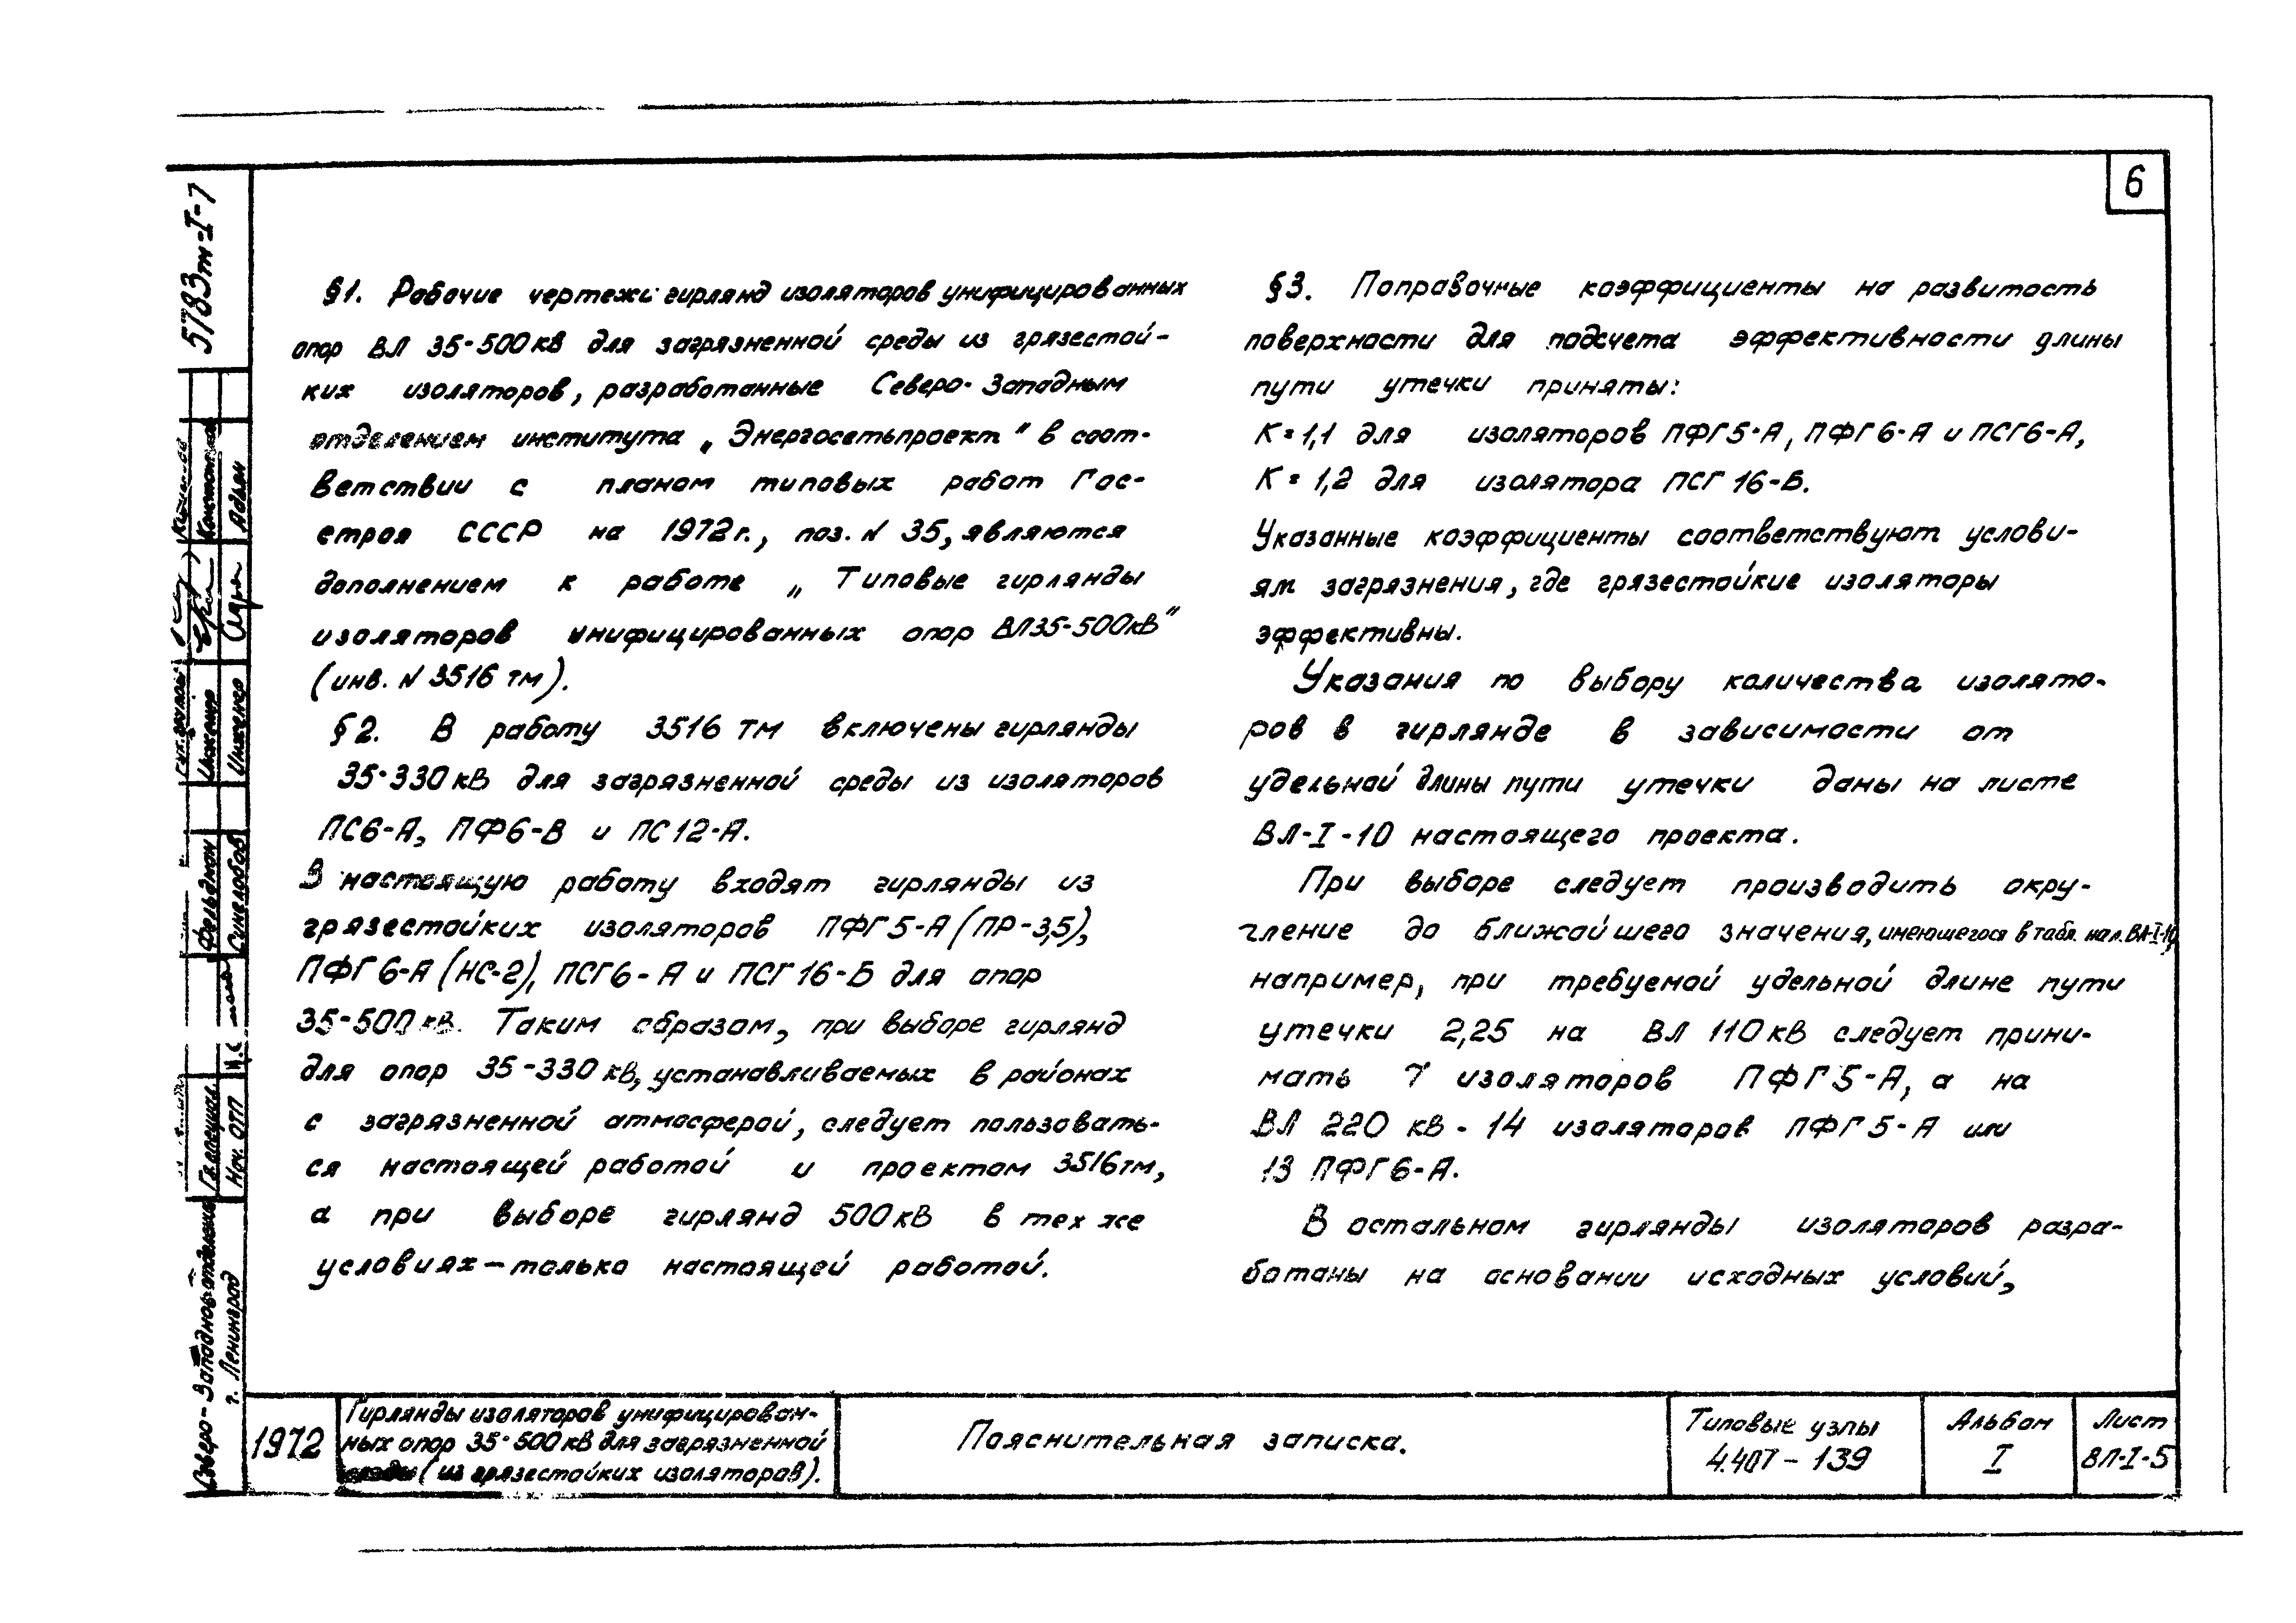 6
§1. Рабочие чертежи гирлянд изоляторов унифицированных
опор ВЛ 35-500кВ для загрязненной среды из грязестой-
ких изоляторов, разработанные Северо-Западным
отделением института „Энергосетьпроект" в соот-
ветствии с планом типовых работ Гос-
строя СССР на 1972г., поз. N 35, являются
дополнением к работе „Типовые гирлянды
изоляторов унифицированных опор ВЛ35-500кВ"
(инв. N 3516 тм).
§2. В работу 3516 тм включены гирлянды
35-330кВ для загрязненной среды из изоляторов
ПС6-А, ПФ6-В и ПС12-А.
В настоящую работу входят гирлянды из
грязестойких изоляторов ПФГ5-А (ПР-3,5),
ПФГ6-А (НС-2), ПСГ6-А и ПСГ16-Б для опор
35-500кВ. Таким образом, при выборе гирлянд
для опор 35-330кВ, устанавливаемых в районах
с загрязненной атмосферой, следует пользовать-
ся настоящей работой и проектом 3516тм,
а при выборе гирлянд 500кВ в тех же
условиях-только настоящей работой.
§3. Поправочные коэффициенты на развитость
поверхности для подсчета эффективности длины
пути утечки приняты:
К=1,1 для изоляторов ПФГ5-А, ПФГ6-А и ПСГ6-А,
К=1,2 для изолятора ПСГ16-Б.
Указанные коэффициенты соответствуют услови-
ям загрязнения, где грязестойкие изоляторы
эффективны.
Указания по выбору количества изолято-
ров в гирлянде в зависимости от
удельной длины пути утечки даны на листе
ВЛ-I-10 настоящего проекта.
При выборе следует производить окру-
гление до ближайшего значения, имеющегося в табл. на л. ВЛ-I-10,
например, при требуемой удельной длине пути
утечки 2,25 на ВЛ 110кВ следует прини-
мать 7 изоляторов ПФГ5-А, а на
ВЛ 220 кВ - 14 изоляторов ПФГ5-А или
13 ПФГ6-А.
В остальном гирлянды изоляторов разра-
ботаны на основании исходных условий,
5783тм-I-7
Инженер
Инженер Адлен
Фельдман
Синелобов
Гл. специал.
Нач. ОТП
Северо-Западное отделение
г. Ленинград
1972
Гирлянды изоляторов унифицирован-
ных опор 35-500кВ для загрязненной
среды (из грязестойких изоляторов).
Пояснительная записка.
Типовые узлы
4.407-139
Альбом
I
Лист
ВЛ-I-5